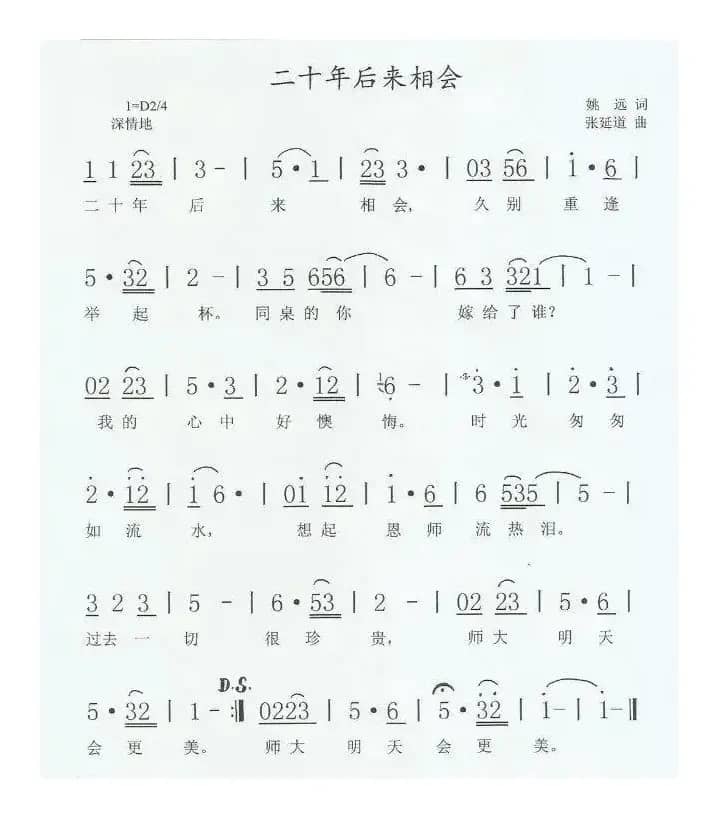 二十年后来相会
1=D2/4
姚 远 词
深情地
张延道 曲
1 1 23 | 3 - | 5 • 1 | 23 3 • | 03 56 | 1 • 6 |
二 十 年 后 来 相 会, 久 别 重 逢
5 • 32 | 2 - | 3 5 656 | 6 - | 6 3 321 | 1 - |
举 起 杯。 同 桌 的 你 嫁 给 了 谁?
02 23 | 5 • 3 | 2 • 12 | 1 6 - | 3 • 1 | 2 • 3 |
我 的 心 中 好 懊 悔。 时 光 匆 匆
2 • 12 | 1 6 • | 01 12 | 1 • 6 | 6 535 | 5 - |
如 流 水, 想 起 恩 师 流 热 泪。
3 2 3 | 5 - | 6 • 53 | 2 - | 02 23 | 5 • 6 |
过 去 一 切 很 珍 贵, 师 大 明 天
D.S.
5 • 32 | 1 - :‖ 0223 | 5 • 6 | 5 • 32 | 1 - | 1 - ‖
会 更 美。 师 大 明 天 会 更 美。